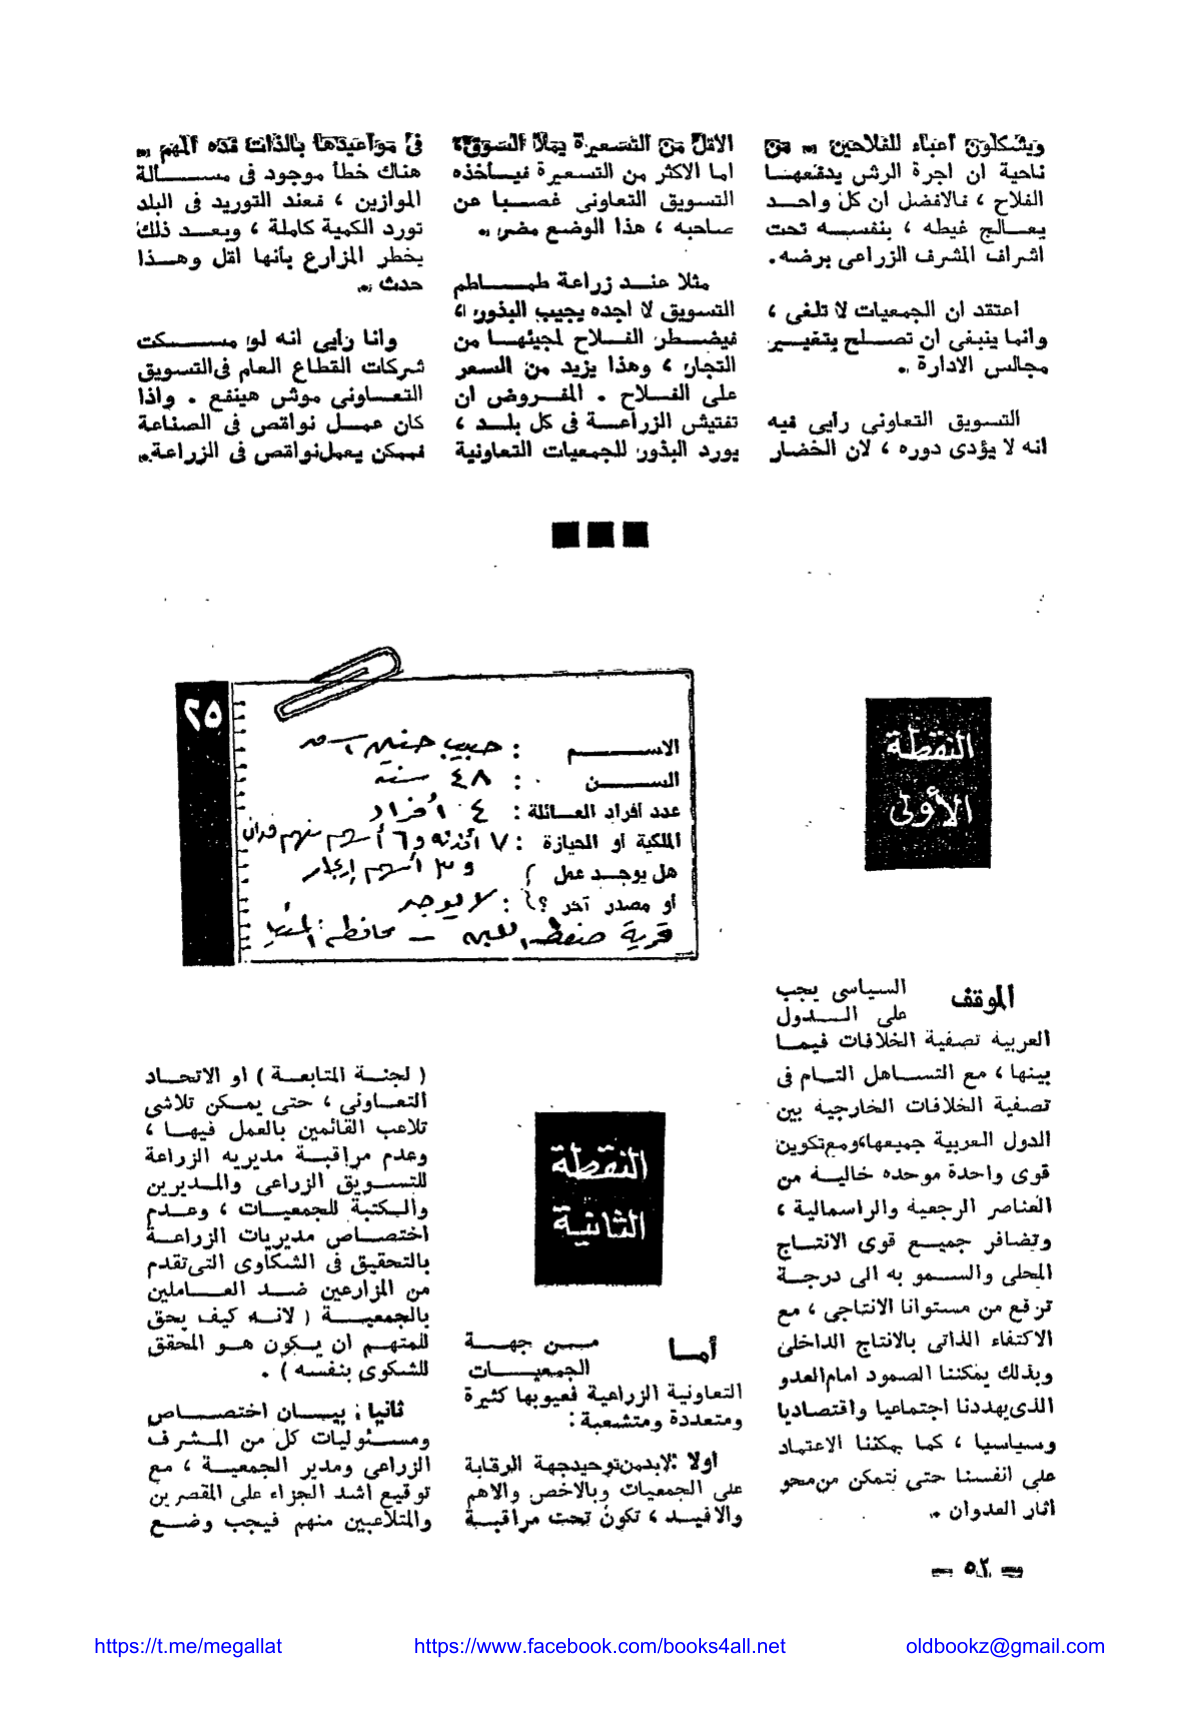 ويشكلون أعباء للفلاحين .. من
ناحية ان اجرة الرش يدفعهـا
الفلاح ، فالافضل ان كل واحـد
يعـالج غيطه ، بنفسـه تحت
اشراف المشرف الزراعى برضه .
اعتقد ان الجمعيات لا تلغى ،
وانما ينبغى ان تصـلح بتغيير
مجالس الادارة ..
التسويق التعاونى رأيى فيه
انه لا يؤدى دوره ، لان الخضار
الاقل من التسعيرة يملأ السوق ،
اما الاكثر من التسعيرة فيـأخذه
التسويق التعاونى غصبـا عن
صاحبه ، هذا الوضع مضر ..
مثلا عنـد زراعة طمـاطم
التسويق لا اجده يجيب البذور ،
فيضـطر الفـلاح لمجيئهـا من
التجار ، وهذا يزيد من السعر
على الفـلاح . المفروض ان
تفتيش الزراعـة فى كل بلـد ،
يورد البذور للجمعيات التعاونية
فى مواعيدها بالذات هذه المهم ..
هناك خطأ موجود فى مسـالة
الموازين ، فعند التوريد فى البلد
تورد الكمية كاملة ، وبعـد ذلك
يخطر المزارع بأنها اقل وهـذا
حدث ..
وانا رأيى انه لو مسـكت
شركات القطاع العام فى التسويق
التعـاونى موش هينفع . واذا
كان عمـل نواقص فى الصناعة
فممكن يعمل نواقص فى الزراعة ..
٢٥
الاســم : حبيب حنين
الســن : ٤٨ سنة
عدد أفراد العـائلة : ٤ أفراد
الملكية أو الحيازة : ٧ أفدنة و ٦ أسهم منهم فدان
و ٣ أسهم إيجار
هل يوجـد عمل
أو مصدر آخر ؟ : لا يوجد
قرية صفط اللبن – محافظة المنيا
النقطة
الأولى
الموقف السياسى يجب
على الـدول
العربية تصفية الخلافات فيمـا
بينها ، مع التسـاهل التـام فى
تصفية الخلافات الخارجية بين
الدول العربية جميعها، ومع تكوين
قوى واحدة موحده خاليـة من
العناصر الرجعية والراسمالية ،
وتضافر جميـع قوى الانتـاج
المحلى والسـمو به الى درجـة
ترفع من مستوانا الانتاجى ، مع
الاكتفاء الذاتى بالانتاج الداخلى
وبذلك يمكننا الصمود امام العدو
الذى يهددنا اجتماعيا واقتصاديا
وسياسيا ، كما يمكننا الاعتماد
على انفسنا حتى نتمكن من محو
اثار العدوان ..
النقطة
الثانية
أمـا مـن جهـة
الجمعيـات
التعاونية الزراعية فعيوبها كثيرة
ومتعددة ومتشعبة :
اولا : لابد من توحيد جهة الرقابة
على الجمعيات وبالاخص والاهم
والافيـد ، تكون تحت مراقبـة
( لجنـة المتابعـة ) او الاتحـاد
التعـاونى ، حتى يمـكن تلاشى
تلاعب القائمين بالعمل فيهـا ،
وعدم مراقبـة مديريه الزراعة
للتسـويق الزراعى والمـديرين
والـكتبة للجمعيـات ، وعـدم
اختصـاص مديريات الزراعـة
بالتحقيق فى الشكاوى التى تقدم
من المزارعين ضـد العـاملين
بالجمعيـة ( لانـه كيف يحق
للمتهـم ان يـكون هـو المحقق
للشكوى بنفسه ) .
ثانيا : بيـان اختصـاص
ومسـئوليات كل من المـشرف
الزراعى ومدير الجمعيـة ، مع
توقيع اشد الجزاء على المقصرين
والمتلاعبين منهم فيجب وضـع
– ٥٢ –
https://t.me/megallat https://www.facebook.com/books4all.net oldbookz@gmail.com